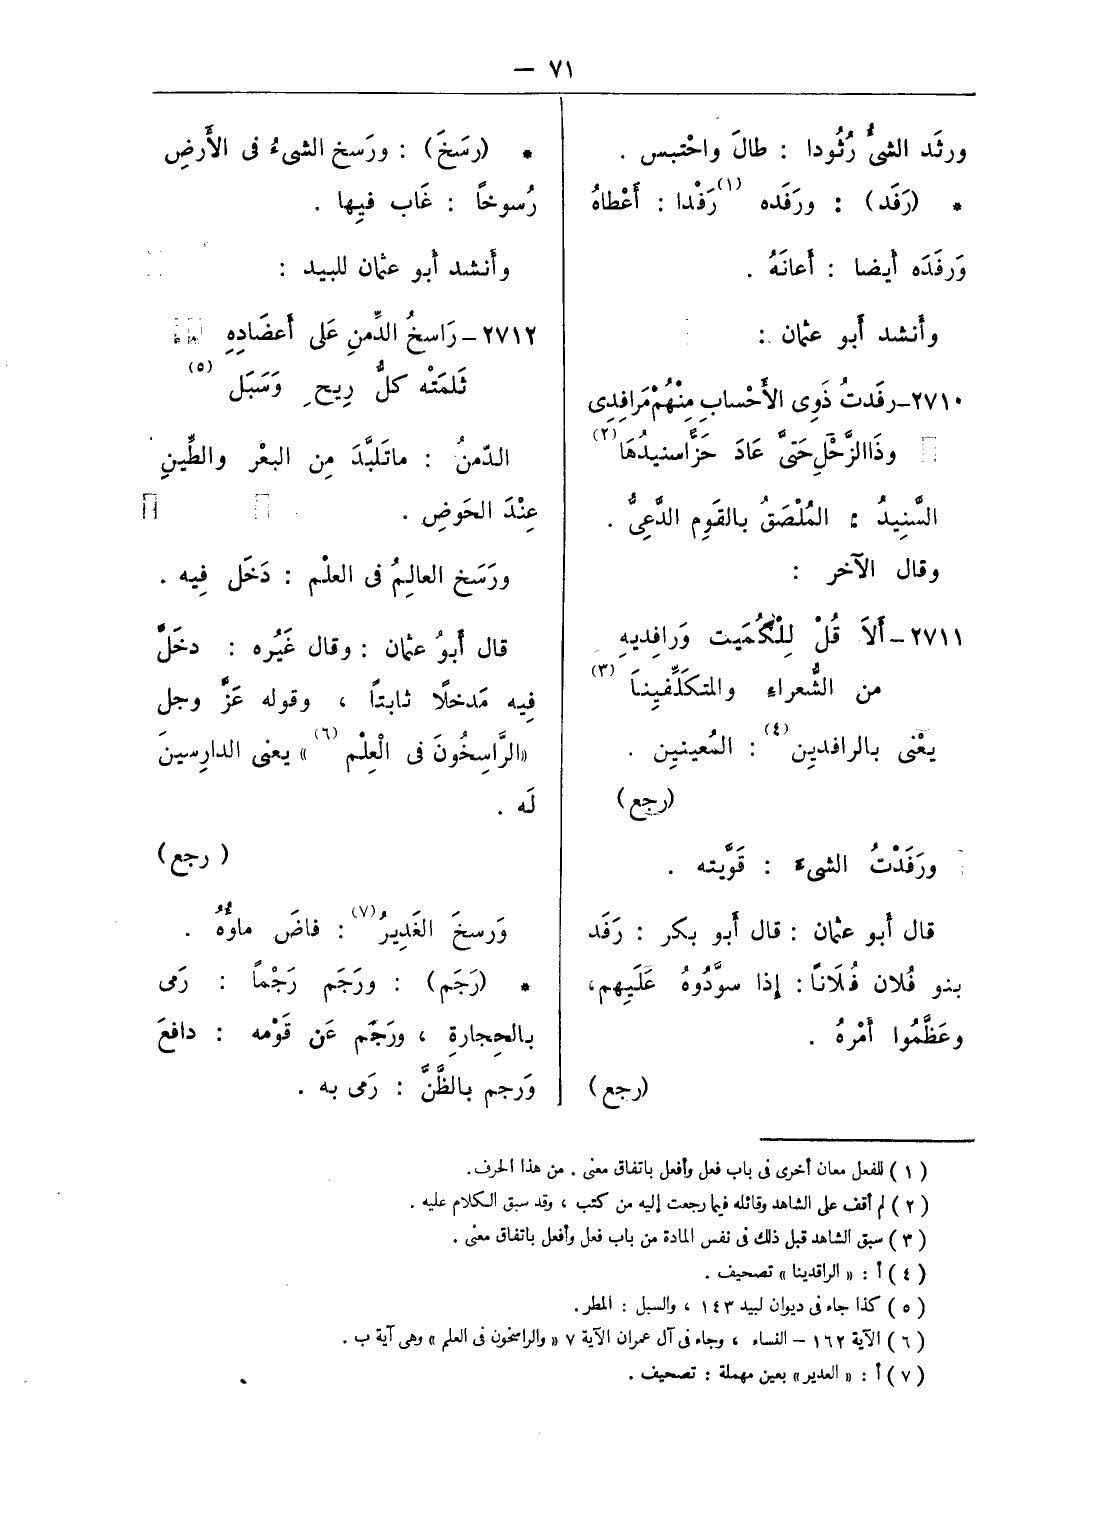 ٧١ —
ورثَد الشىُّ رُثُودا : طالَ واحْتبس .
* (رَفَد) : ورَفَده (١) رَفْدا : أَعْطاهُ
وَرفَدَه أيضا : أَعانَهُ .
وأنشد أَبو عثمان :
٢٧١٠ـ رفَدتُ ذَوِى الأَحْسابِ مِنْهُمْ مَرَافِدِى
وذَا الزَّحْلِ حَتىَّ عَادَ حَزًّا سنيدُهَا (٢)
السَّنِيدُ : المُلْصَقُ بالقَومِ الدَّعِىُّ .
وقال الآخر :
٢٧١١ـ أَلاَ قُلْ لِلْكُمَيت وَرافِديهِ
من الشُّعراء والمتكلِّفِينَا (٣)
يعْنى بالرافدِين (٤) : المُعينين .
(رجع)
ورَفَدْتُ الشىء : قَوَّيته .
قال أبو عثمان : قال أَبو بكر : رَفَد
بنو فُلان فُلَاناً : إِذا سوَّدُوهُ عَلَيهِم ،
وعَظَّمُوا أَمْرهُ .
(رجع)
* (رسَخَ) : ورَسخ الشىءُ فى الأَرضِ
رُسوخاً : غَاب فيِها .
وأَنشد أبو عثمان للبيد :
٢٧١٢ـ رَاسخُ الدِّمنِ عَلى أَعضَادِهِ
ثَلمَتْه كلُّ رِيحٍ وَسَبَل (٥)
الدّمنُ : ماتَلبَّدَ مِن البعْر والطِّينِ
عِنْدَ الحَوضِ .
ورَسَخ العالِمُ فى العلْم : دَخَل فِيه .
قال أَبوُ عثمان : وقال غَيُره : دخَلَ
فِيه مَدخلًا ثابتاً ، وقوله عَزَّ وجل
«الرَّاسِخُونَ فى الْعِلْم (٦) » يعنى الدارِسينَ
لَه .
( رجع)
وَرسخَ الغَدِيرُ (٧) : فاضَ ماؤُهُ .
* (رَجَم) : ورَجَم رَجْماً : رَمى
بالحِجارةِ ، ورجَم عَن قَوْمه : دافعَ
وَرجم بالظَّنَّ : رَمى به .
( ١ ) للفعل معان أخرى فى باب فعل وأفعل باتفاق معنى . من هذا الحرف .
( ٢ ) لم أقف على الشاهد وقائله فيما رجعت إليه من كتب ، وقد سبق الكلام عليه .
( ٣ ) سبق الشاهد قبل ذلك فى نفس المادة من باب فعل وأفعل باتفاق معنى .
( ٤ ) أ : « الراقدينا » تصحيف .
( ٥ ) كذا جاء فى ديوان لبيد ١٤٣ ، والسبل : المطر .
( ٦ ) الآية ١٦٢ – النساء ، وجاء فى آل عمران الآية ٧ « والراسخون فى العلم » وهى آية ب .
( ٧ ) أ : « العدير » بعين مهملة : تصحيف .